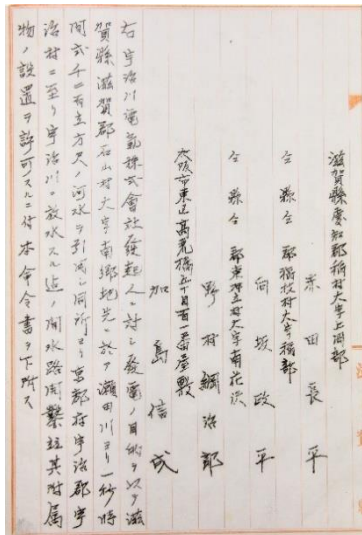 滋賀縣愛知郡稲村大字上岡部
赤田長平
仝縣仝郡稲枝村大字稲部
向坂政平
仝縣仝郡葉枝見村大字南花沢
野村綱治郎
大阪市東区高麗橋五丁目百一番屋敷
加島信成
右宇治川電氣株式會社發起人ニ対シ發電ノ目的ヲ以テ滋
賀縣滋賀郡石山村大字南郷地先ニ於テ瀬田川ヨリ一秒時
間弍千二百立方尺ノ河水ヲ引流シ同所ヨリ京都府宇治郡宇
治村ニ至リ宇治川ヘ放水スル迠ノ間水路開鑿並其附属
物ノ設置ヲ許可スルニ付本命令書ヲ下附ス